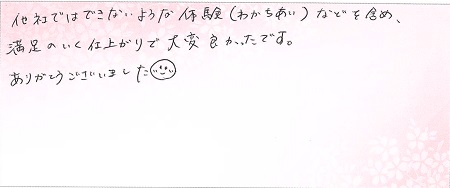 他社ではできないような体験(わかちあい)などを含め、
満足のいく仕上がりで大変良かったです。
ありがとうございました